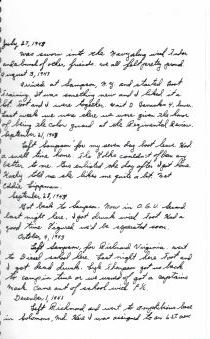 July 27, 1943
Was sworn into the Navy along with Tudor
and a bunch of other friends we all felt pretty proud
August 3, 1943
Arrived at Sampson, N.Y. and started boot
training. It was something new and I liked it a
lot. Scot and I were together. Unit D Barracks
Last week we were here we were given the honor
of being the color guard at the Regimental Review
September 21, 1943
Left Sampson for my seven day boot leave. Had
a swell time home. The folks couldn't of been any
better to me. Gene enlisted the day after I got home
Ruthy told me she likes me quite a bit. Met
Eddie Lippman
September 28, 1943
Got back to Sampson. Now in O.G.U. Around
last night here. I got drunk with Scot. Had a
good time. Figured we'd be separated soon
October 4, 1943
Left Sampson, for Richmond Virginia went
to Diesel school here. Last night here Scot and I
and I got dead drunk. got us back
to camp in time or we would of got a captains
mask. Came out of school with F3/c
December 1, 1943
Left Richmond and went to amphibious base
in Solomons, Md. Here I was assigned to an LST crew